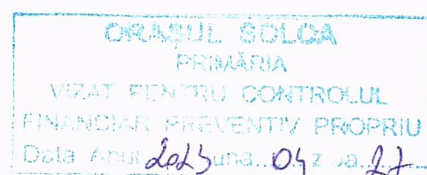 ORAȘUL SOLCA
PRIMĂRIA
VIZAT PENTRU CONTROLUL
FINANCIAR PREVENTIV PROPRIU
Data Anul 2023 Luna..04 ziua..27